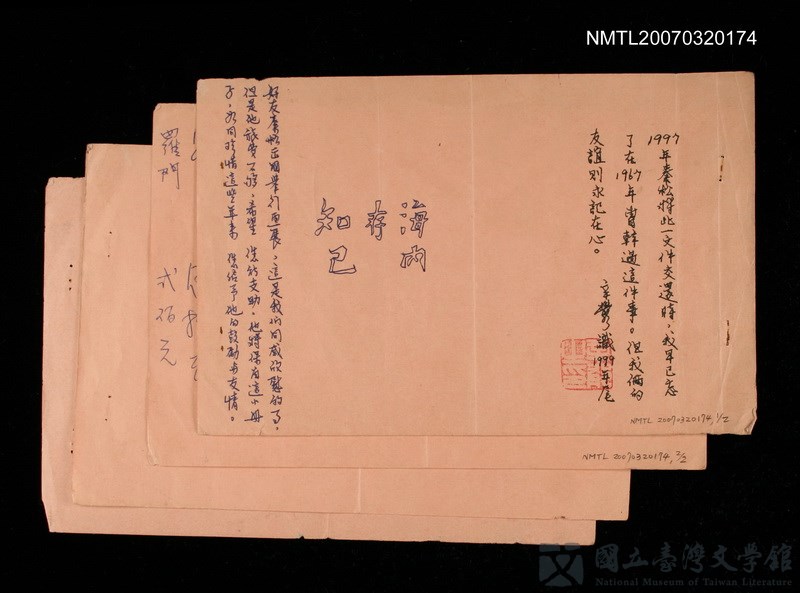 NMTL20070320174
1997年秦松將此一文件交還時，我早已忘
了在1967年曾幹過這件事。但我倆的
友誼則永記在心。
辛鬱識1999年尾
海內
存
知己
好友秦松正因業行西展，這是我們同感欣慰的事，
但是他旅費不夠，希望您能支助。他將保有這小冊
子，永同珍惜這些年來您給予他的鼓勵与友情。
羅門
弍佰元
NMTL 20070320174, 1/2
NMTL 20070320174, 2/2
國立臺灣文學館
National Museum of Taiwan Literature